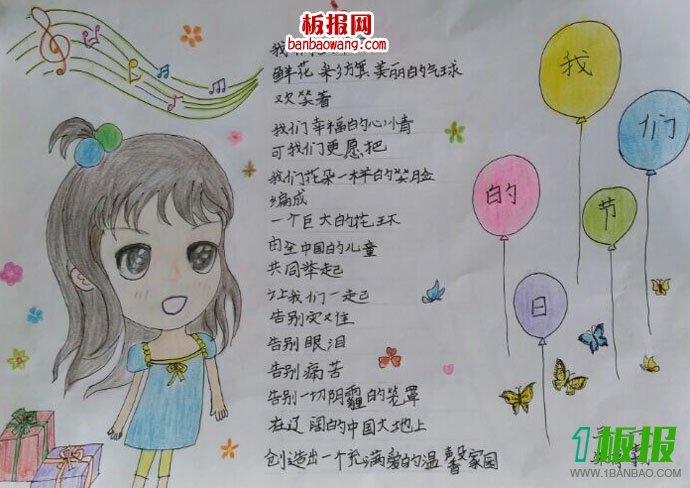 板报网
banbaowang.com
我们
鲜花 彩旗 美丽的气球
欢笑着
我们幸福的心情
可我们更愿把
我们花朵一样的笑脸
编成
一个巨大的花环
由全中国的儿童
共同举起
让我们一起
告别灾难
告别眼泪
告别病苦
告别一切阴霾的笼罩
在辽阔的中国大地上
创造出一个充满爱的温馨家园
我
们
的
节
日
1板报
WWW.1BANBAO.COM